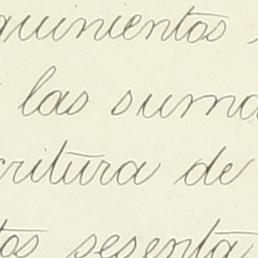 quinientos
las suma
critura de
tos sesenta